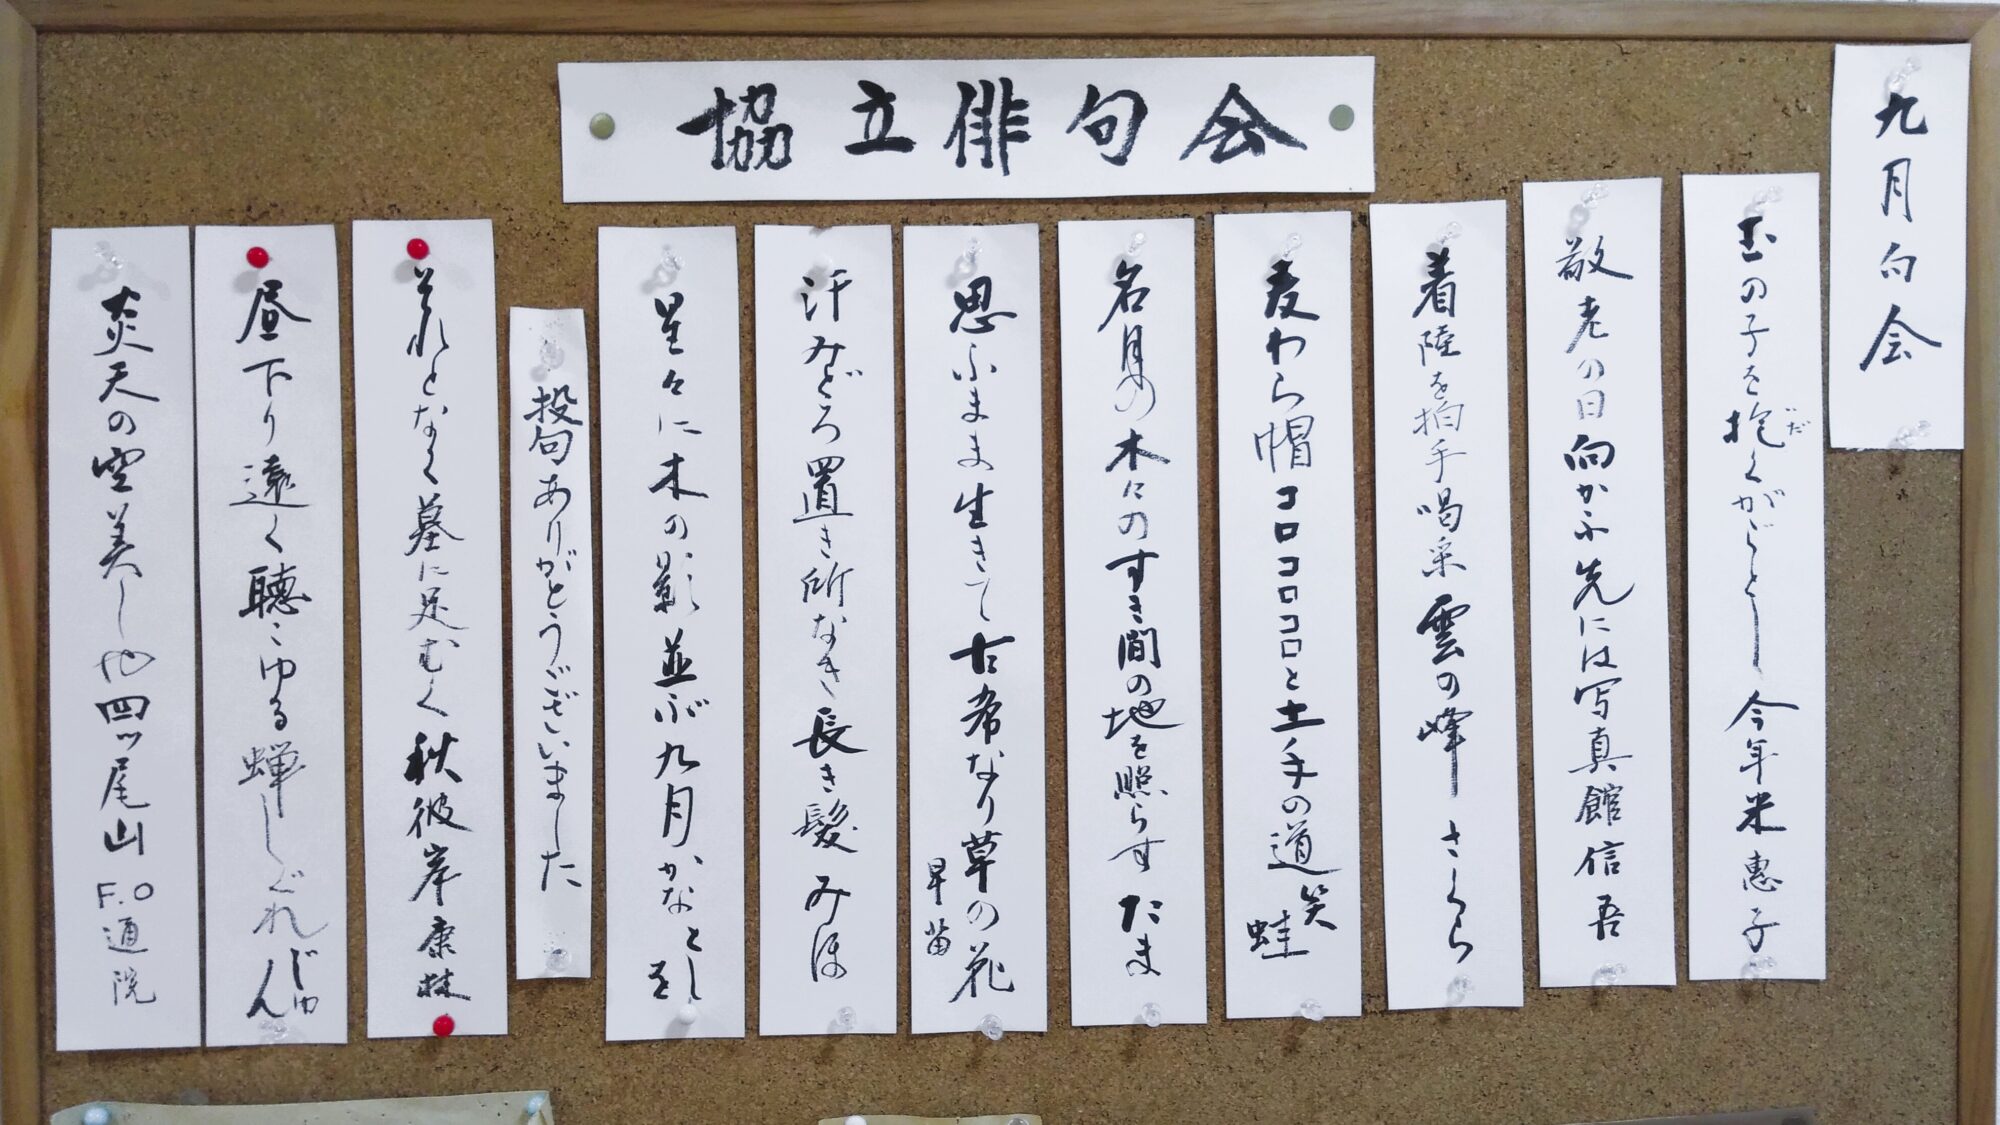 協立俳句会
九月句会
玉の子を抱くがごとし今年米 恵子
だ
敬老の日向かふ先には写真館 信吾
着陸を拍手喝采雲の峰 さくら
麦わら帽コロコロコロと土手の道 笑蛙
名月の木々のすき間の地を照らす たま
思ふまま生きて古希なり草の花 早苗
汗みどろ置き所なき長き髪 みほ
星々に木の影並ぶ九月かな とし
投句ありがとうございました
それとなく墓に足むく秋彼岸 康林
昼下り遠く聴こゆる蝉しぐれ じゅん
炎天の空美し也四ッ尾山 F.O 通院